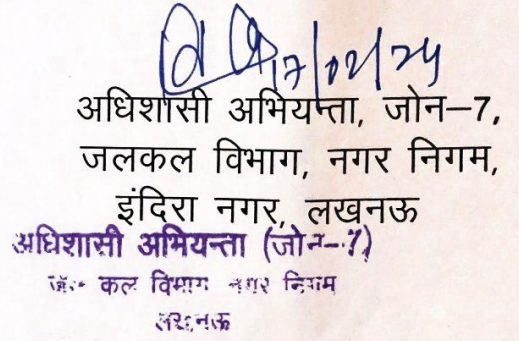 17/02/24
अधिशासी अभियन्ता, जोन–7,
जलकल विभाग, नगर निगम,
इंदिरा नगर, लखनऊ
अधिशासी अभियन्ता (जोन-7)
कल विभाग नगर निगम
लखनऊ